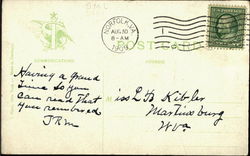 SML
NORFOLK, VA.
AUG 10
8-AM
POST CARD
COMMUNICATIONS
ADDRESS
Having a grand
time so you
can read that
your
JRM
Miss L D Kibler
Martinsburg
WVa